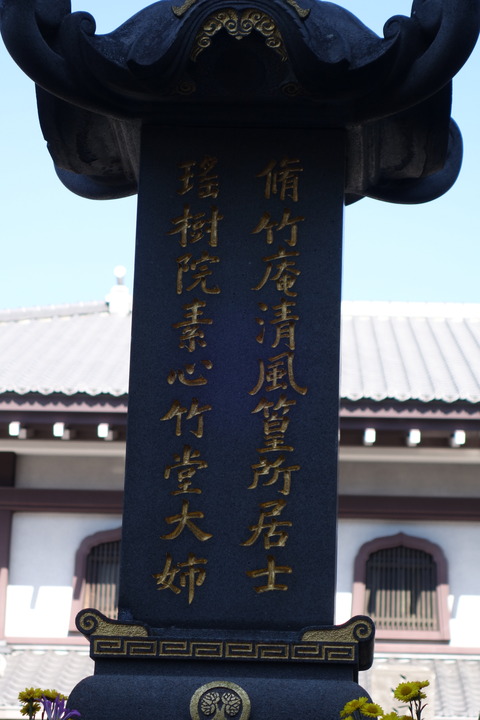 脩竹庵清風篁所居士
瑤樹院素心竹堂大姉